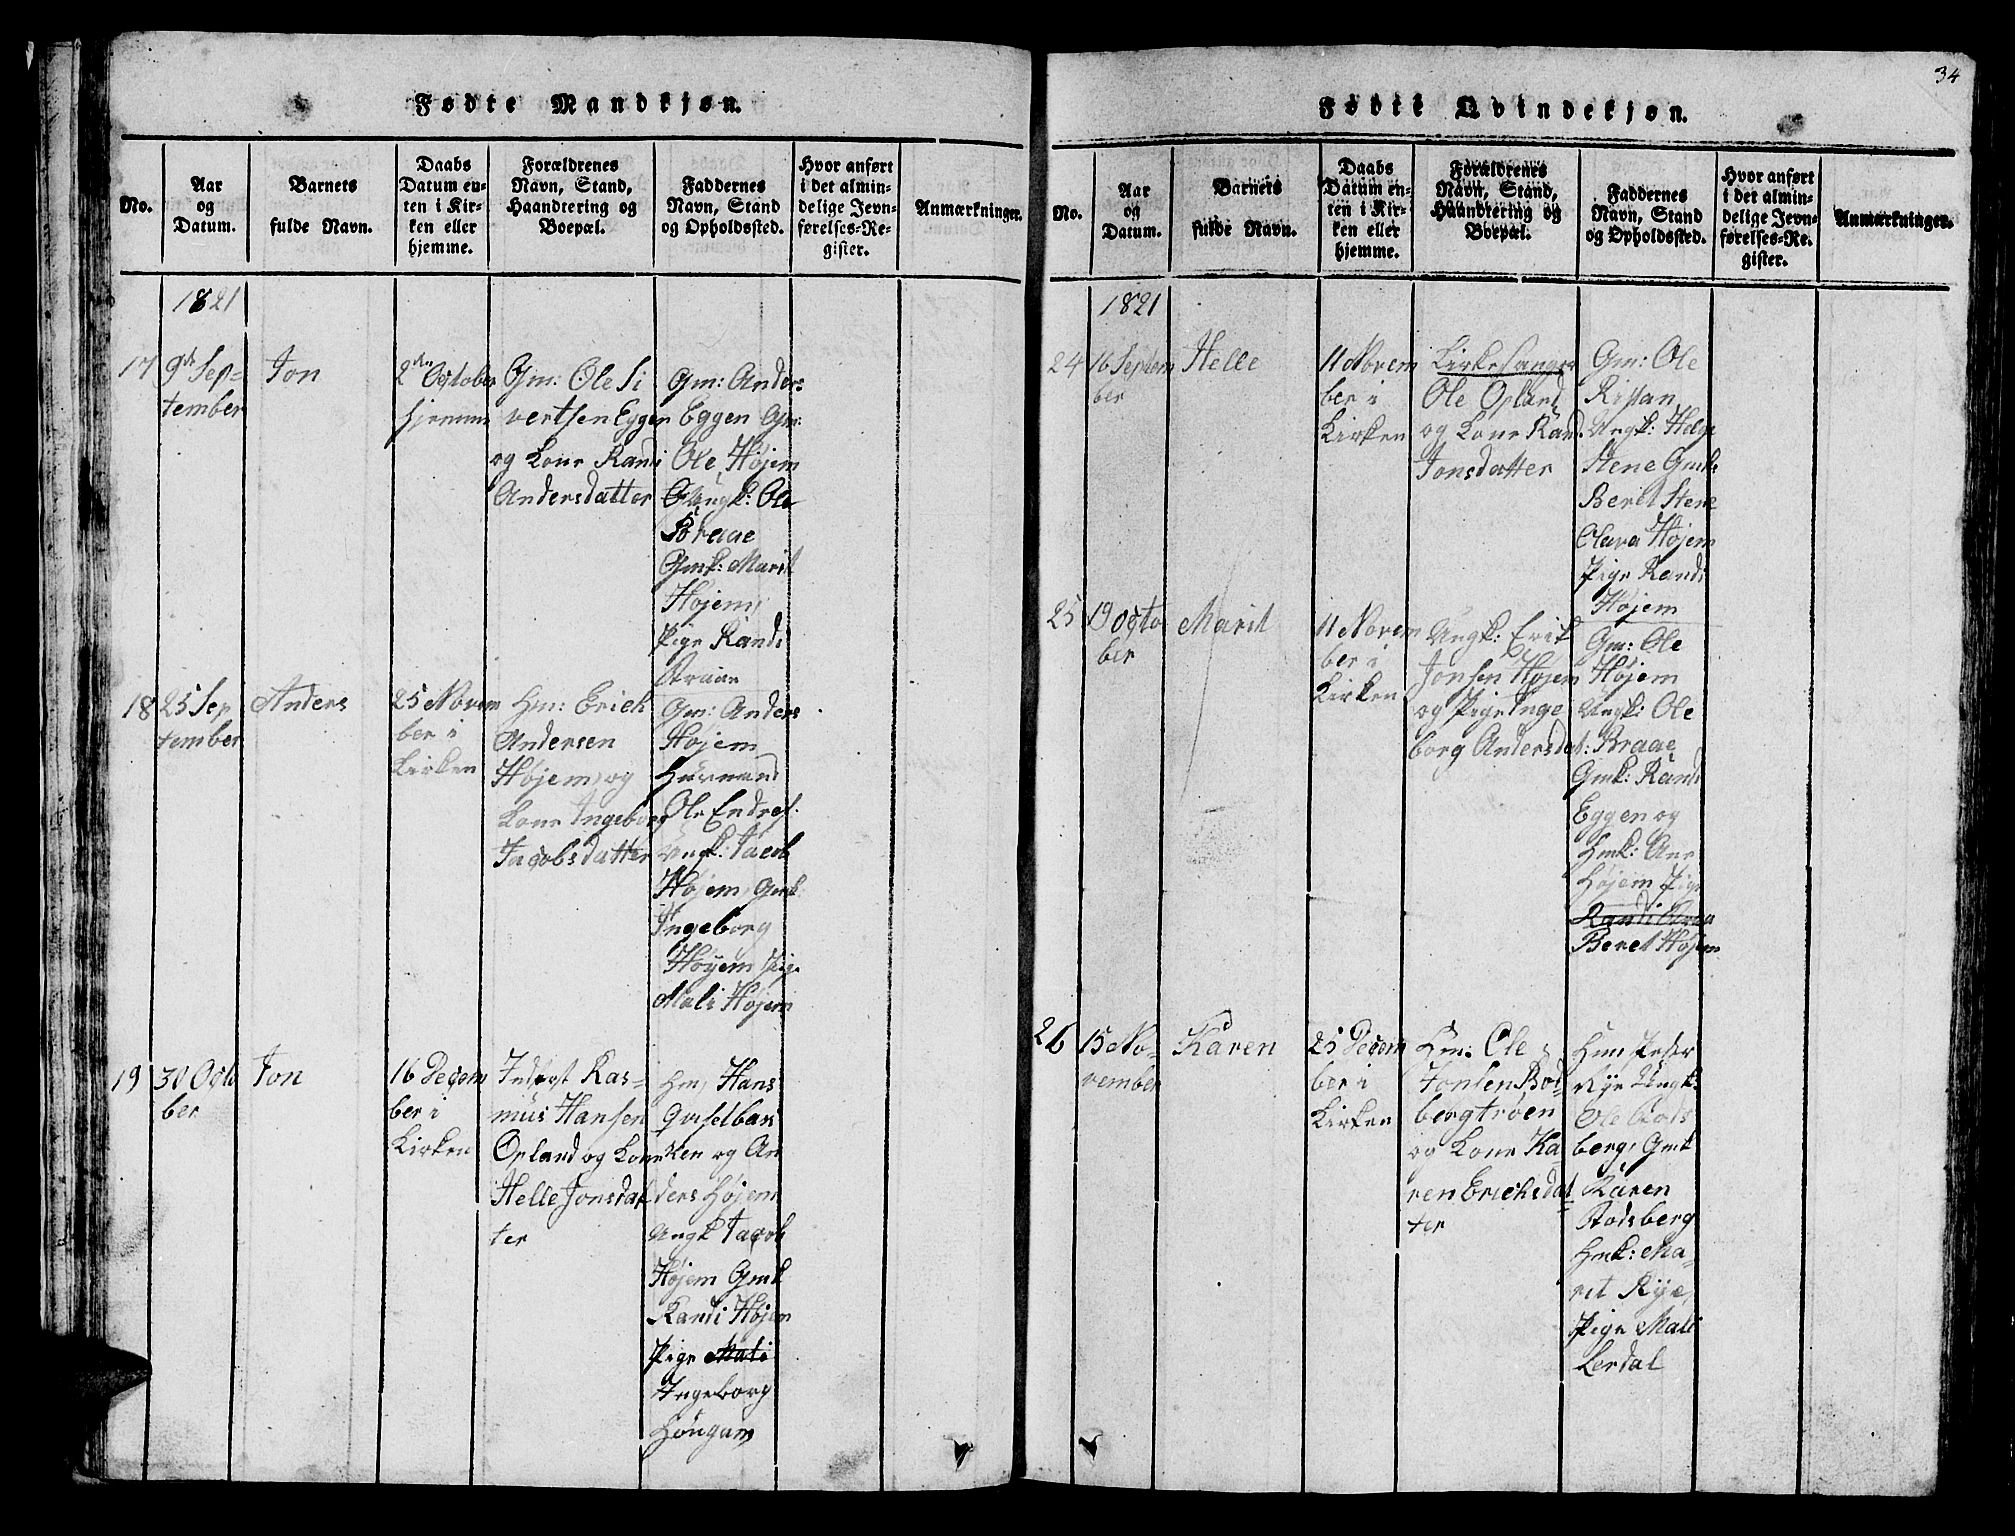 Fødte Mandkjøn.
No.
Aar
og
Datum.
Barnets
fulde Navn.
Daabs
Datum en-
ten i Kir-
ken eller
hjemme.
Forældrenes
Navn, Stand,
Haandtering og
Boepæl.
Faddernes
Navn, Stand
og Opholdssted.
Hvor anført
i det almin-
delige Jevn-
førelses-Re-
gister.
Anmærkninger.
1821
17
9de Sep-
tember
Jon
2den October
hjemme
Gm: Ole Si
vertsen Eggen
og Kone Randi
Andersdatter
Gm: Anders
Eggen Gm:
Ole Højem
Ungk: Ole
Braae
Gmk: Marit
Højem,
Pige Randi
Braae
18
25 Sep
tember
Anders
25 Novem
ber i
Kirken
Hm: Erich
Andersen
Højem, og
Kone Ingeborg
Jacobsdatter
Gm: Anders
Højem
Huusmand
Ole Endres.
Ungk: Jacob
Højem, Gmk
Ingeborg
Höyem Pige
Mali Højem
19
30 Octo
ber
Jon
16 Decem
ber i
Kirken
Inderst Ras-
mus Hansen
Opland og Kone
Helle Jonsdat
ter
Hm, Hans
Qvselbak
ken og An
ders Højem
Ungk Jacob
Højem Gmk
Randi Højem
Pige Mali
Ingeborg
Höugum
34
Fødte Qvindekjøn.
No.
Aar
og
Datum.
Barnets
fulde Navn.
Daabs
Datum en-
ten i Kir-
ken eller
hjemme.
Forældrenes
Navn, Stand,
Haandtering og
Boepæl.
Faddernes
Navn, Stand
og Opholdssted.
Hvor anført
i det almin-
delige Jevn-
førelses-Re-
gister.
Anmærkninger.
1821
24
16 Septem
ber
Helle
11 Novem
ber i
Kirken
Kirkesanger
Ole Opland
og Kone Rand.
Jonsdatter
Gm: Ole
Rissan
Ungk: Helge
Stene Gmk:
Berit Stene
Olava Højem
Pige Randi
Højem
25
19 Octo
ber
Marit
11 Novem
ber i
Kirken
Ungk: Erik
Jonsen Højem
og Pige Inge
borg Andersdat:
Gm: Ole
Højem
Ungk: Ole
Braae
Gmk: Randi
Eggen og
Hmk: Ane
Højem Pige
Randi
Beret Højem
26
15 No-
vember
Karen
25 Decem
ber i
Kirken
Hm: Ole
Jonsen Rod
bergtrøen
og Kone Ka
ren Erichsdat
ter
Hm Peder
Rye Ungk:
Ole Rods
berg, Gmk
Karen
Rodsberg
Hmk: Ma-
rit Rye,
Pige Mali
Lerdal